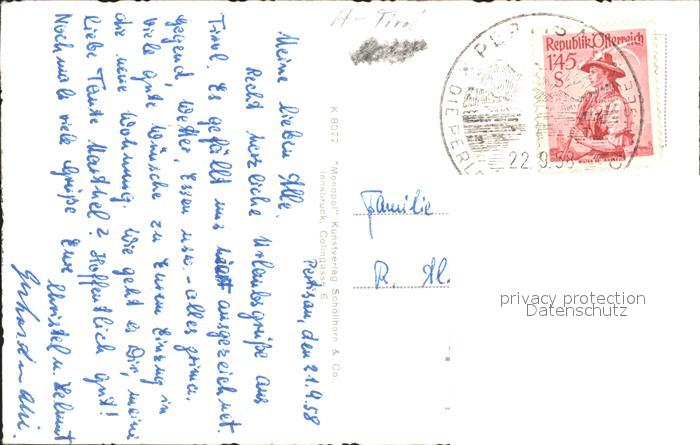 A-Tirol
Pertisau, den 21.9.58
Meine lieben Alle.
Recht herzliche Urlaubsgrüße aus
Tirol. Es gefällt uns ausgezeichnet.
Gegend, Wetter, Essen usw. - alles prima.
Viele gute Wünsche zu Eurem Einzug in
die neue Wohnung. Wie geht es Dir, meine
liebe Tante Marthel? Hoffentlich gut!
Nochmals viele Grüße Eure Christel u. Helmut
Gerhard u.
K 8077 "Monopol" Kunstverlag Schöllhorn & Co.
Innsbruck, Colingasse 6
Republik Österreich
145
S
PERTISAU
DIE PERLE
22.9.58
Familie
R. Al
privacy protection
Datenschutz